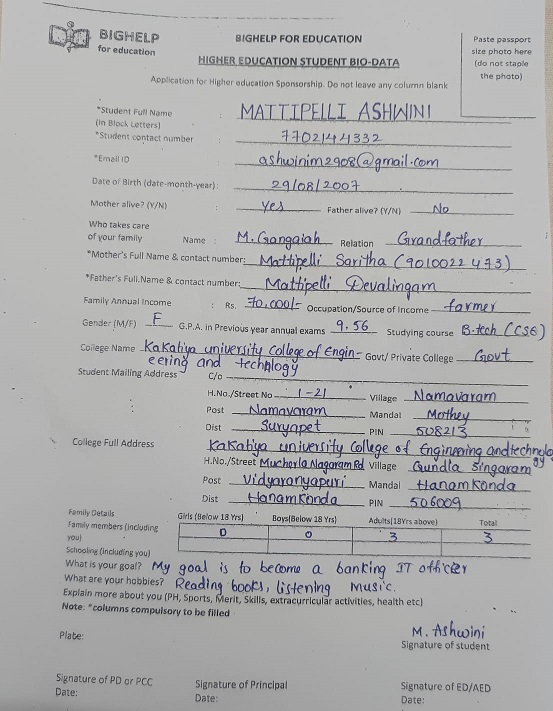 BIGHELP
for education
BIGHELP FOR EDUCATION
HIGHER EDUCATION STUDENT BIO-DATA
Paste passport
size photo here
(do not staple
the photo)
Application for Higher education Sponsorship. Do not leave any column blank
*Student Full Name : MATTIPELLI ASHWINI
(in Block Letters)
*Student contact number : 7702144332
*Email ID : ashwinim2908@gmail.com
Date of Birth (date-month-year) : 29/08/2007
Mother alive? (Y/N) : yes Father alive? (Y/N) No
Who takes care
of your family Name : M. Gangaiah Relation Grandfather
*Mother's Full Name & contact number: Mattipelli Saritha (9010022473)
*Father's Full Name & contact number: Mattipelli Devalingam
Family Annual Income : Rs. 70,000/- Occupation/Source of Income farmer
Gender (M/F) F G.P.A. in Previous year annual exams 9.56 Studying course B.tech (CSE)
College Name Kakatiya university College of Engin- Govt/ Private College Govt
eering and technology
Student Mailing Address C/o
H.No./Street No 1-21 Village Namavaram
Post Namavaram Mandal Mothey
Dist Suryapet PIN 508213
College Full Address Kakatiya university College of Engineering and technology
H.No./Street Mucherla Nagaram Rd Village Gundla Singaram
Post Vidyaranyapuri Mandal Hanamkonda
Dist Hanamkonda PIN 506009
Family Details Girls (Below 18 Yrs) Boys(Below 18 Yrs) Adults(18Yrs above) Total
Family members (including you) 0 0 3 3
Schooling (including you)
What is your goal? My goal is to become a banking IT officer
What are your hobbies? Reading books, listening Music.
Explain more about you (PH, Sports, Merit, Skills, extracurricular activities, health etc)
Note: *columns compulsory to be filled
Place:
M. Ashwini
Signature of student
Signature of PD or PCC Signature of Principal Signature of ED/AED
Date: Date: Date: